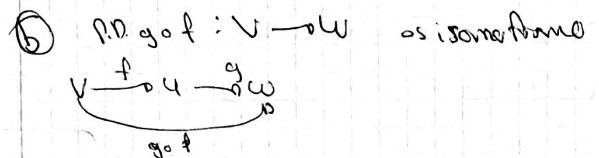 b) P.D. g o f : V → W es isomorfismo
V →f U →g W
g o f